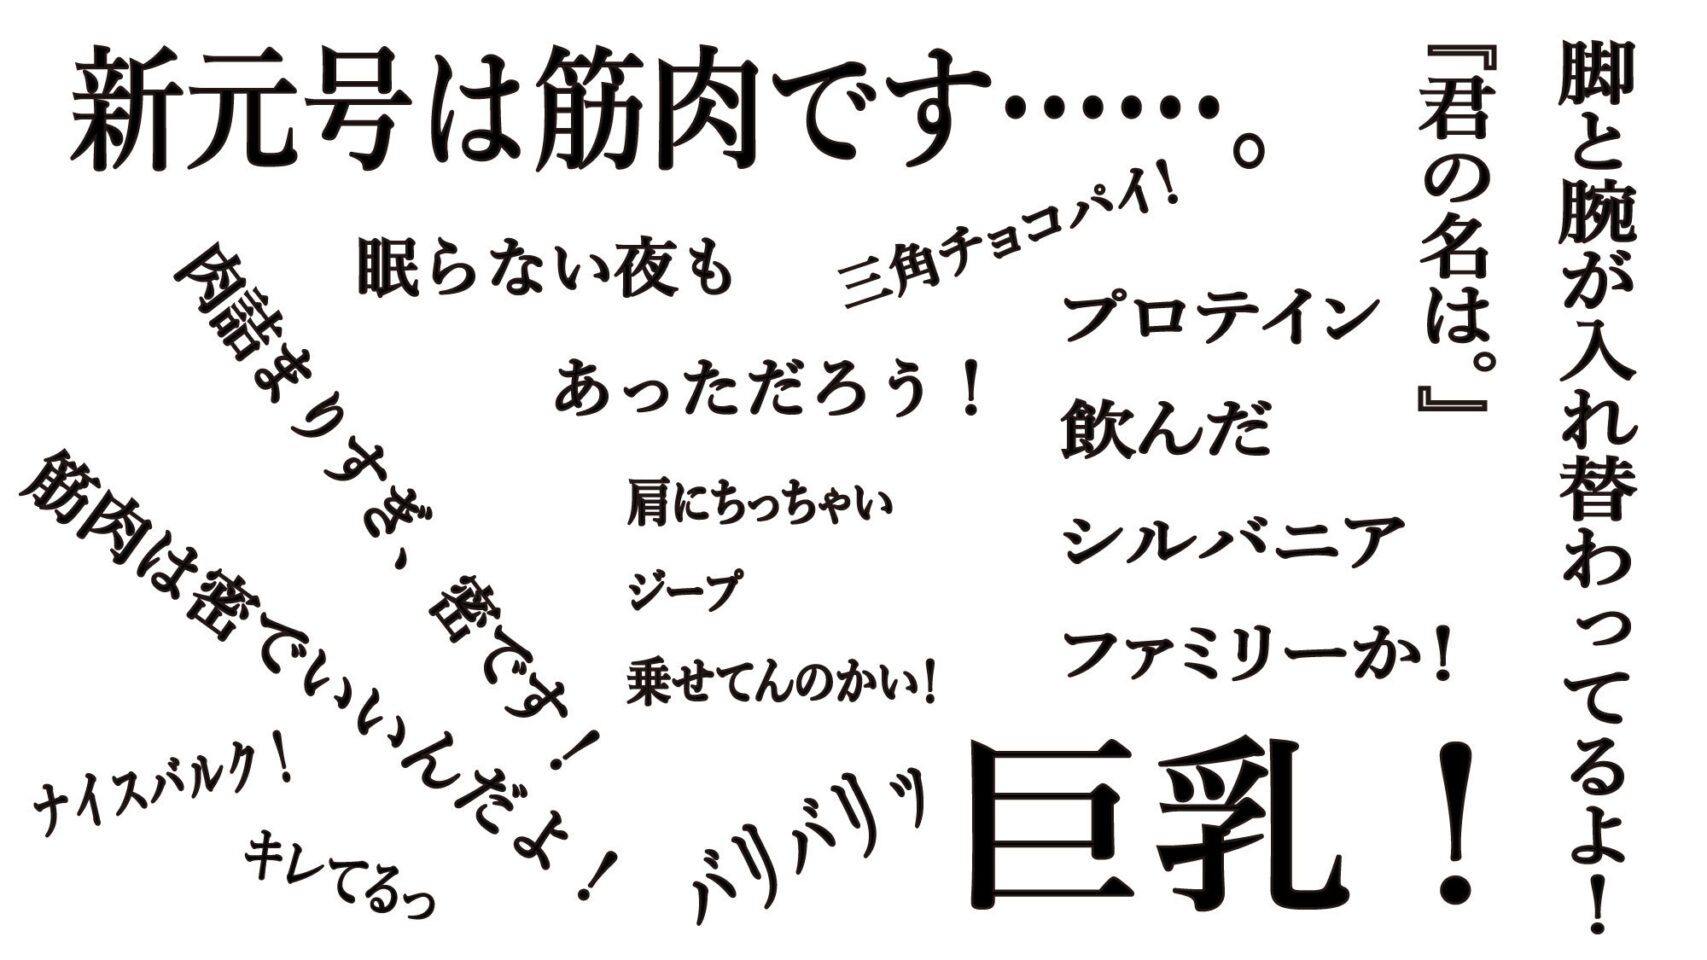 新元号は筋肉です……。
脚と腕が入れ替わってるよ！
『君の名は。』
三角チョコパイ！
眠らない夜も
あっただろう！
プロテイン
飲んだ
シルバニア
ファミリーか！
肩にちっちゃい
ジープ
乗せてんのかい！
肉詰まりすぎ、密です！
筋肉は密でいいんだよ！
ナイスバルク！
キレてるっ
バリバリッ
巨乳！